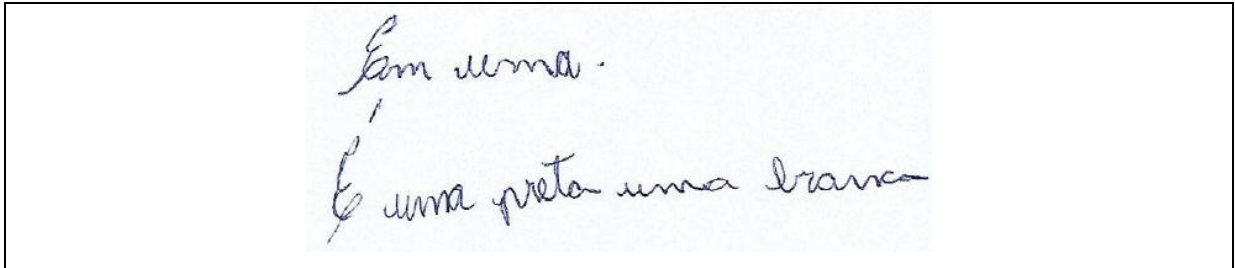 Em uma.
É uma preta uma branca